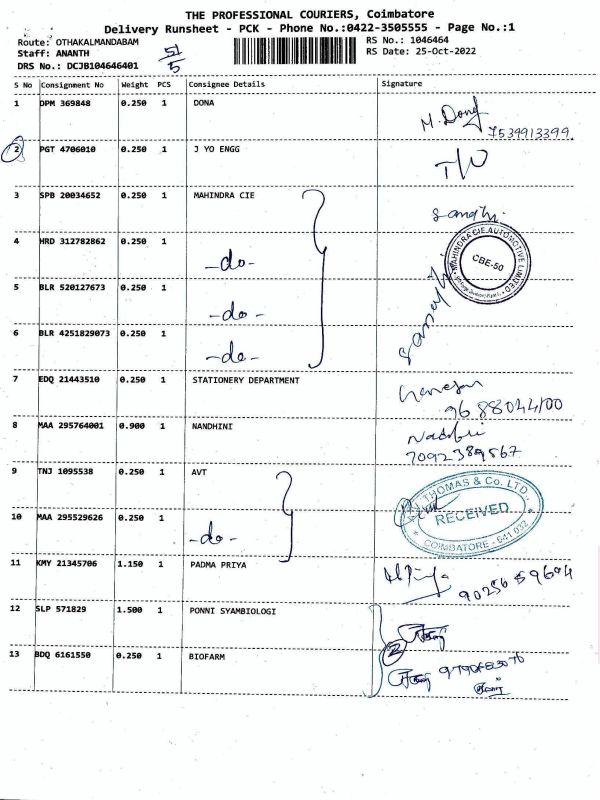 THE PROFESSIONAL COURIERS, Coimbatore
Delivery Runsheet - PCK - Phone No.:0422-3505555 - Page No.:1
Route: OTHAKALMANDABAM
RS No.: 1046464
Staff: ANANTH
RS Date: 25-Oct-2022
DRS No.: DCJB104646401
51/5
S No Consignment No Weight PCS Consignee Details Signature
1 DPM 369848 0.250 1 DONA
M. Dong
7539913399.
2 PGT 4706010 0.250 1 J YO ENGG
3 SPB 20034652 0.250 1 MAHINDRA CIE
4 HRD 312782862 0.250 1 -do-
MAHINDRA CIE AUTOMOTIVE LIMITED
CBE-50
5 BLR 520127673 0.250 1 -do-
6 BLR 4251829073 0.250 1 -do-
7 EDQ 21443510 0.250 1 STATIONERY DEPARTMENT
9688044100
8 MAA 295764001 0.900 1 NANDHINI
7092389567
9 TNJ 1095538 0.250 1 AVT
THOMAS & Co. LTD.,
RECEIVED
COIMBATORE - 641 032
10 MAA 295529626 0.250 1 -do-
11 KMY 21345706 1.150 1 PADMA PRIYA
9025659694
12 SLP 571829 1.500 1 PONNI SYAMBIOLOGI
2
13 BDQ 6161550 0.250 1 BIOFARM